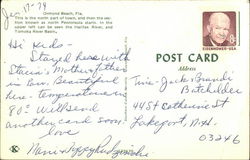 Jan 17-79
Ormond Beach, Fla.
This is the north part of town, and then the section known as north Peninsula starts. In the upper left can be seen the Halifax River, and Tomoka River Basin.
EISENHOWER·USA
POST CARD
Address
Hi Kids-
Stayed here with
Mother & father
in Law. Beautiful
here - Temperature in
80's Will send
another card soon
love
Tina - Jack - Brandi
Batchelder
445 Catherine St
Lakeport, N.H.
03246